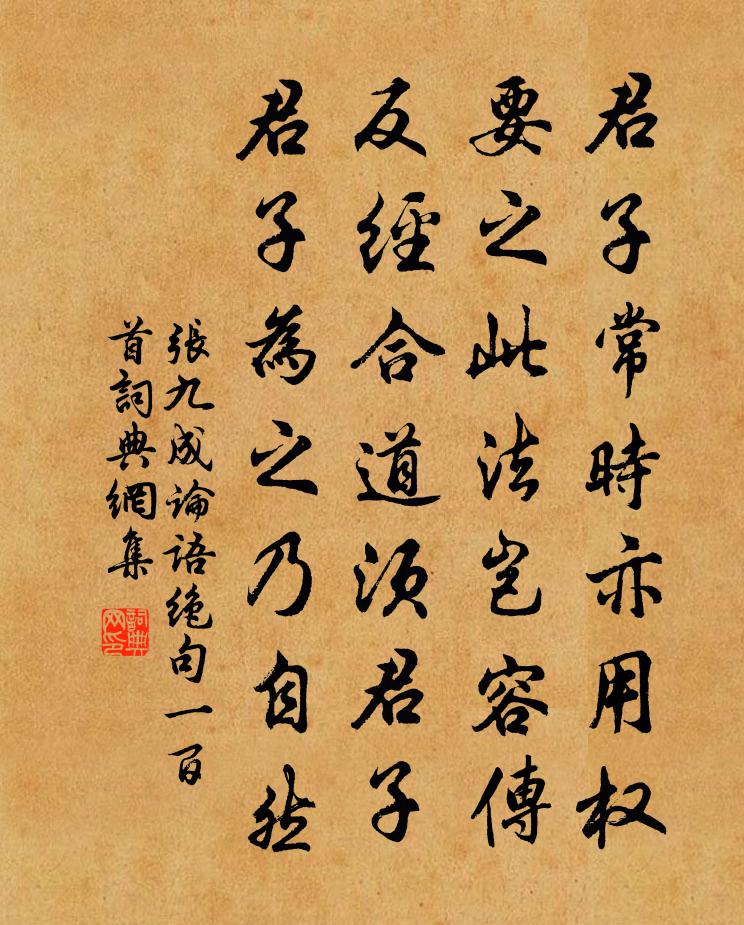 君子常時亦用权
要之此法豈容傳
反經合道須君子
君子為之乃自然
張九成論語絶句一百
首詞典網集
詞典网印